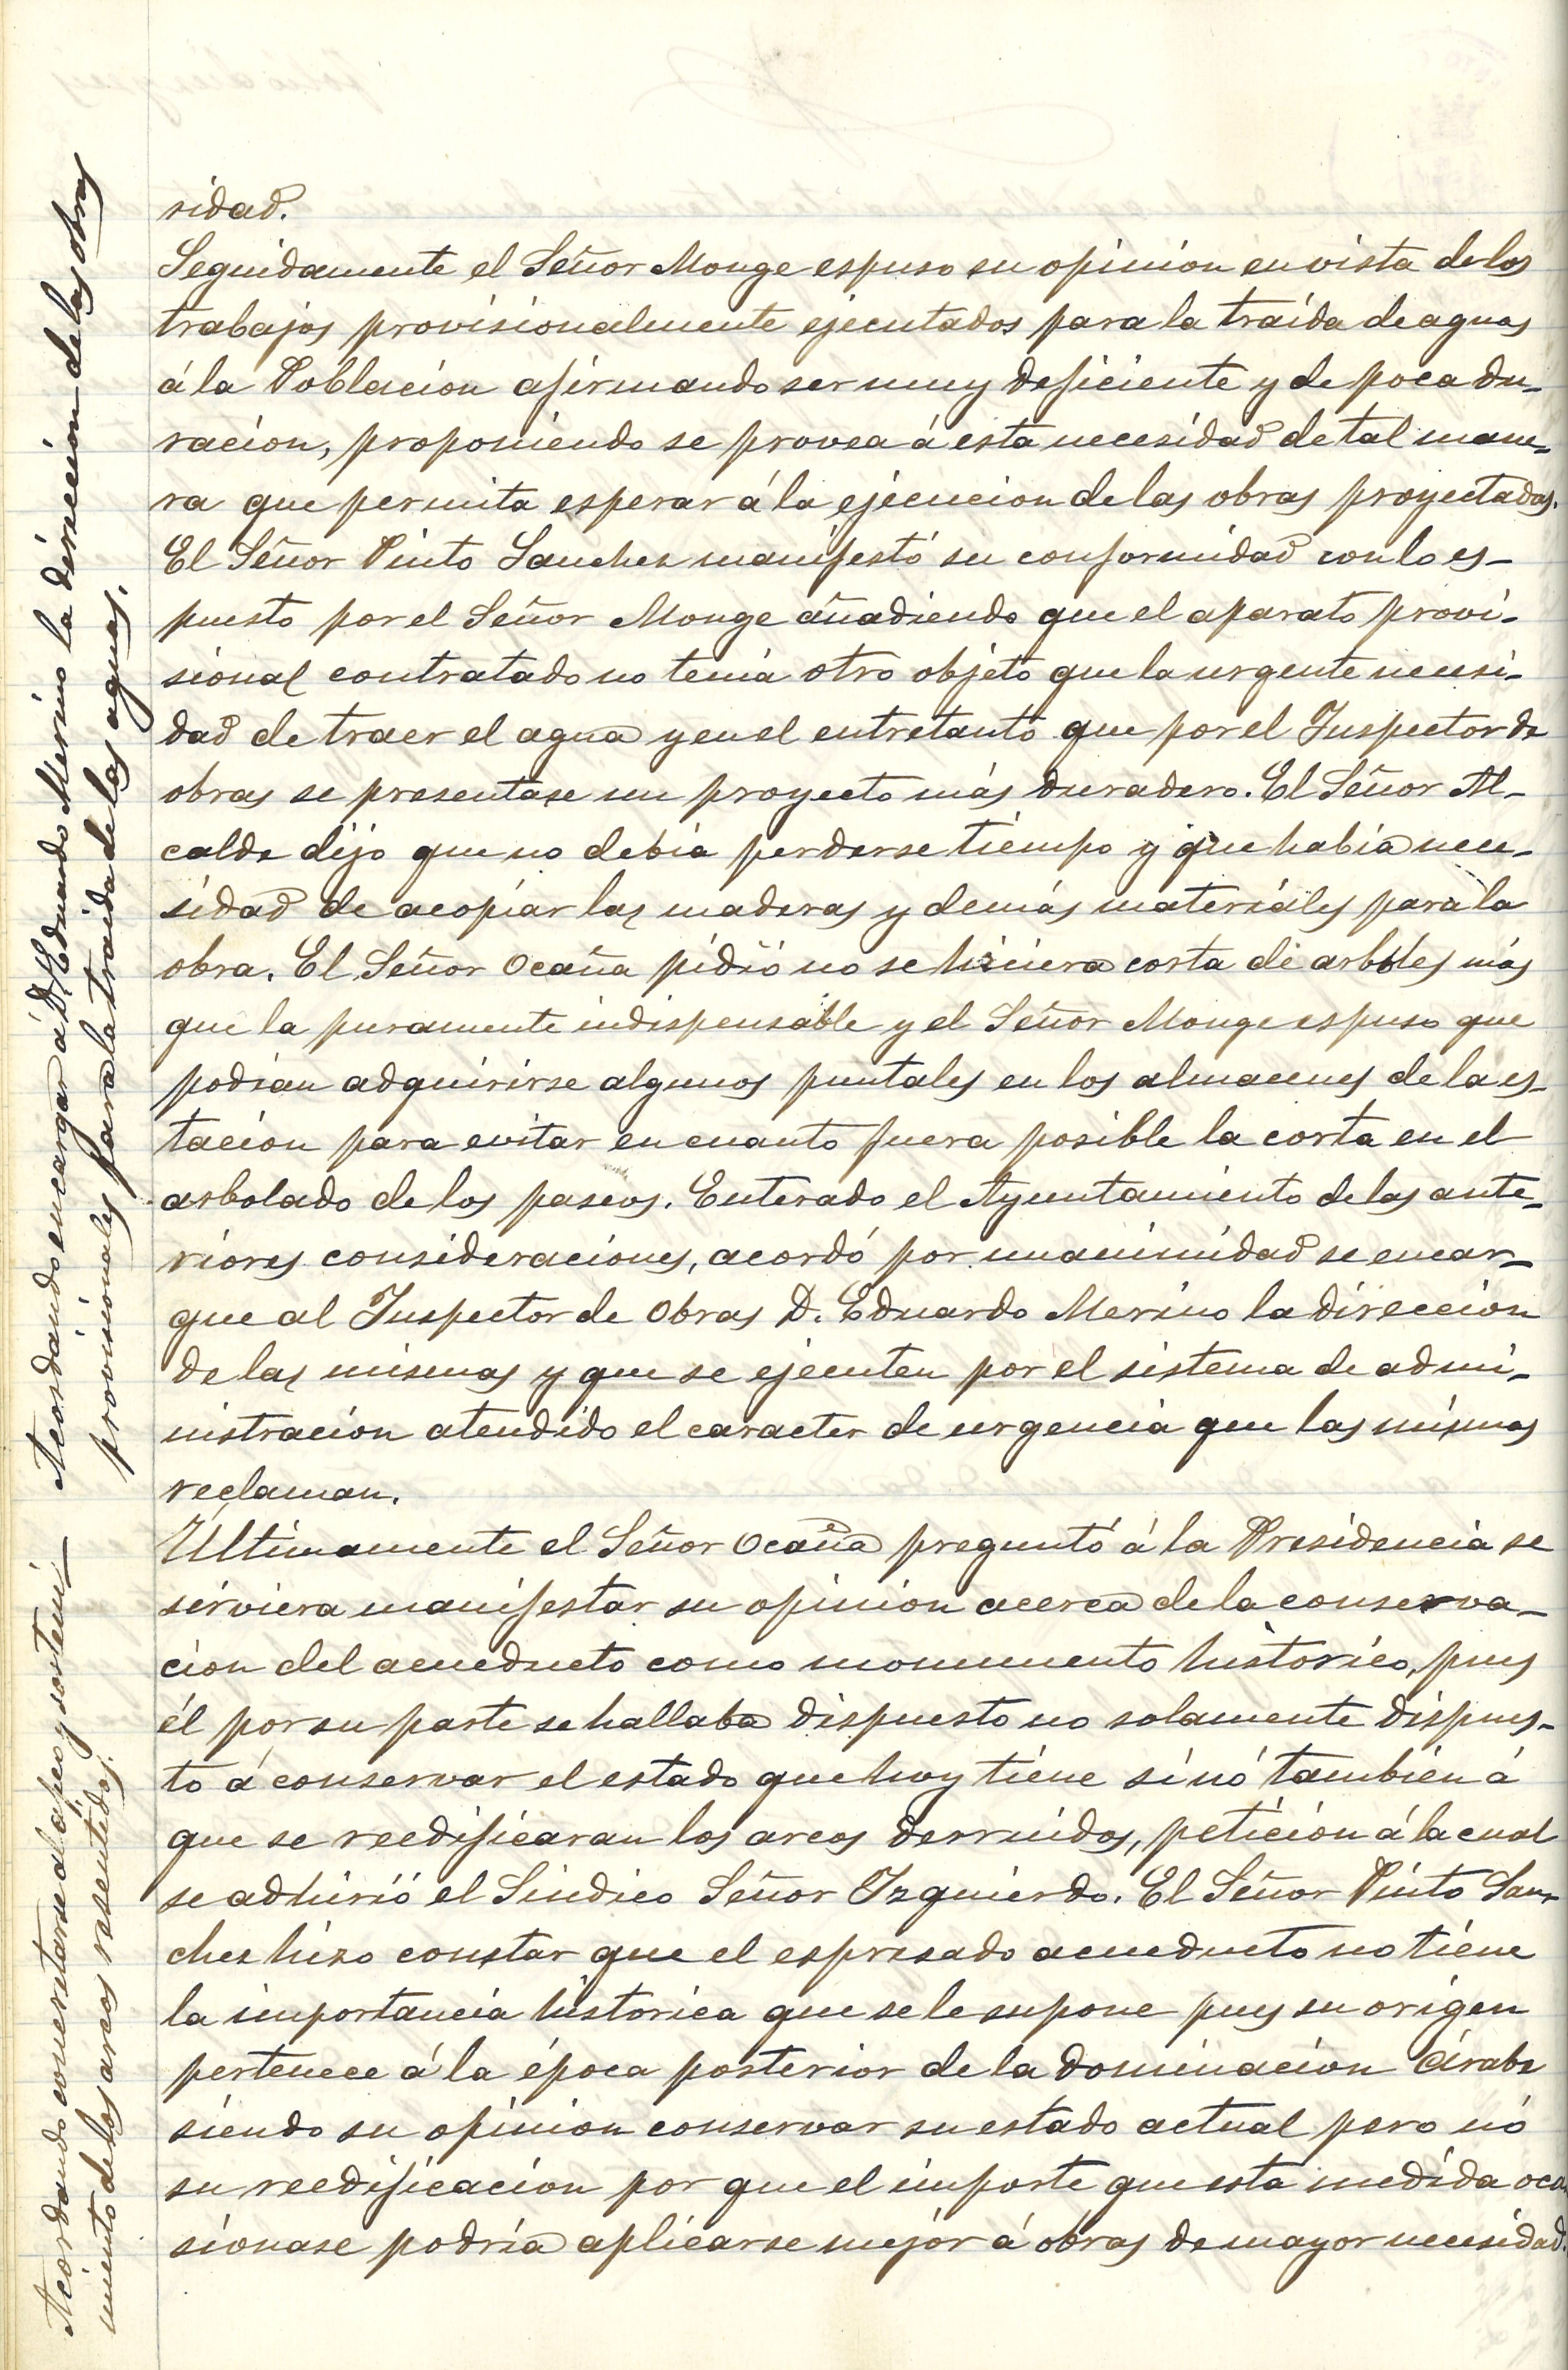 sidad.
Seguidamente el Señor Monge espuso su opinion en vista de los
trabajos provisionalmente ejecutados para la traida de aguas
á la Poblacion afirmando ser muy deficiente y de poca du-
racion, proponiendo se provea á esta necesidad de tal mane-
ra que permita esperar á la ejecucion de las obras proyectadas.
El Señor Pinto Sanchez manifestó su conformidad con lo es-
puesto por el Señor Monge añadiendo que el aparato provi-
sional contratado no tenia otro objeto que la urgente necesi-
dad de traer el agua y en el entretanto que por el Inspector de
obras se presentase un proyecto más duradero. El Señor Al-
calde dijo que no debia perderse tiempo y que habia nece-
sidad de acopiar las maderas y demás materiales para la
obra. El Señor Ocaña pidió no se hiciera corta de arboles más
que la puramente indispensable y el Señor Monge espuso que
podian adquirirse algunos puntales en los almacenes de la es-
tacion para evitar en cuanto fuera posible la corta en el
arbolado de los paseos. Enterado el Ayuntamiento de las ante-
riores consideraciones, acordó por unanimidad se encar-
gue al Inspector de Obras D. Eduardo Merino la direccion
de las mismas y que se ejecuten por el sistema de admi-
nistracion atendido el caracter de urgencia que las mismas
reclaman.
Últimamente el Señor Ocaña preguntó á la Presidencia se
serviera manifestar su opinion acerca de la conserva-
cion del acueducto como monumento historico, pues
él por su parte se hallaba dispuesto no solamente dispues-
to á conservar el estado que hoy tiene sinó tambien á
que se reedificaran los arcos derruidos, peticion á la cual
se adhirió el Sindico Señor Izquierdo. El Señor Pinto San-
chez hizo constar que el espresado acueducto no tiene
la importancia historica que se le supone pues su origen
pertenece á la época posterior de la dominacion Árabe
siendo su opinion conservar su estado actual pero nó
su reedificacion por que el importe que esta medida oca-
sionase podria aplicarse mejor á obras de mayor necesidad.
Acordando encargar á D. Eduardo Merino la direccion de las obras
provisionales para la traida de las aguas.
Acordando concretarse al apeo y sosteni-
miento de los arcos resentidos.